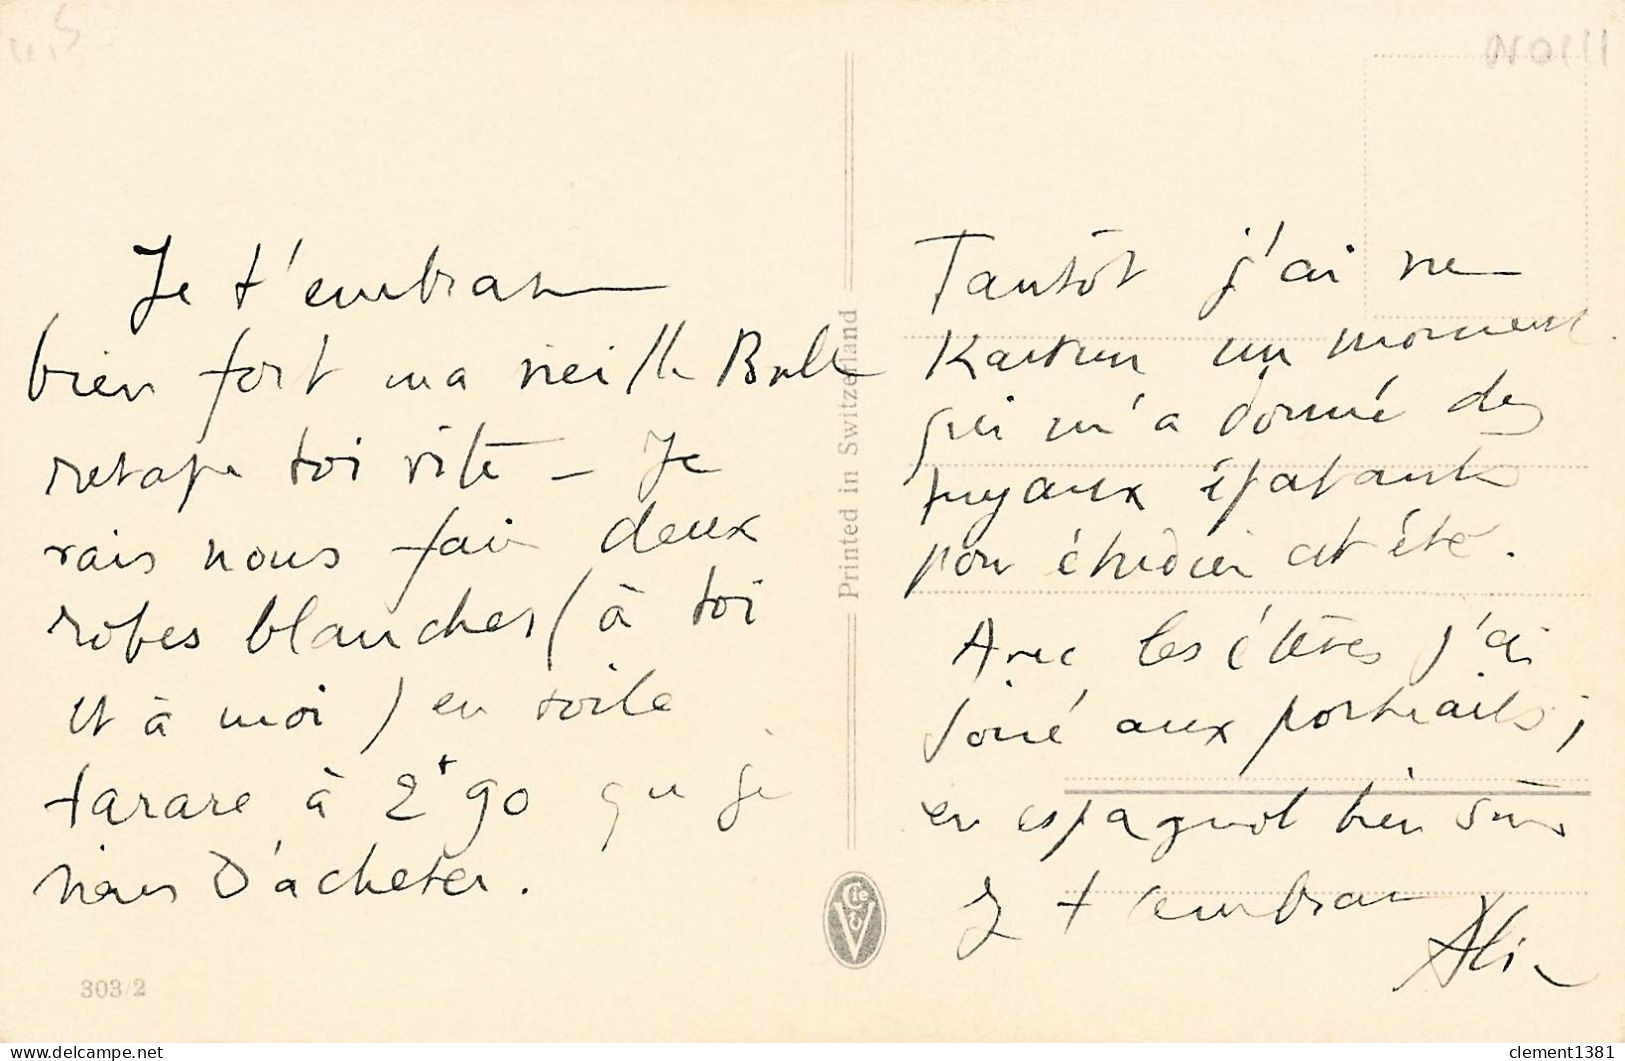 Je t'embrasse
bien fort ma vieille Bulle
retape toi vite - Je
vais nous faire deux
robes blanches (à toi
et à moi) en toile
tarare à 2f90 que je
viens d'acheter.
303/2
Printed in Switzerland
Tantôt j'ai vu
un moment
qui m'a donné des
tuyaux épatants
pour étudier cet été.
Avec les élèves j'ai
joué aux portraits ;
en espagnol bien sûr
Je t'embrasse
clement1381